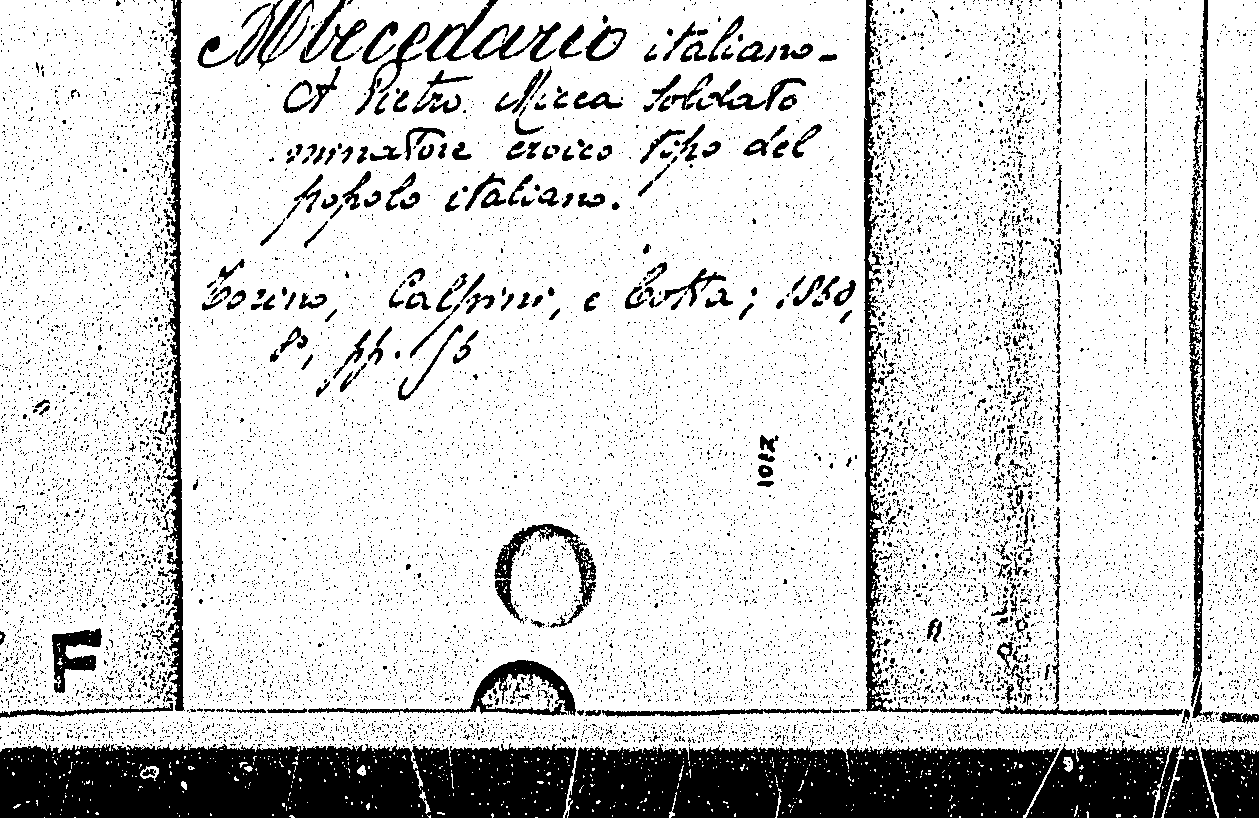 Abecedario italiano-
A Pietro Micca soldato
minatore eroico tipo del
popolo italiano.
Torino, Calpini, e Cotta; 1860,
8°, pp. 56
1012
F